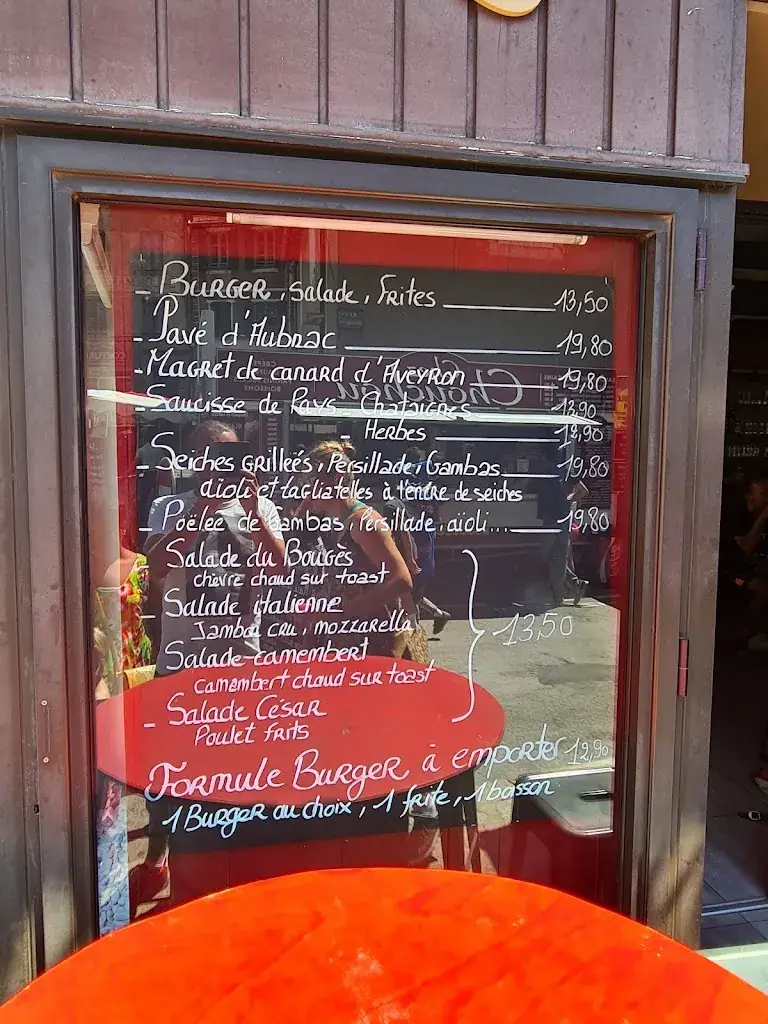 - Burger, salade, frites 13,50
- Pavé d'Aubrac 19,80
- Magret de canard d'Aveyron 19,80
- Saucisse de Pays - Chataignes 13,90
- Herbes 12,90
- Seiches grilleés, Persillade, Gambas 19,80
aïoli et tagliatelles à l'encre de seiches
- Poëlee de Gambas, Persillade, aïoli... 19,80
- Salade du Bougès
chèvre chaud sur toast
- Salade italienne
Jambon cru, mozzarella
13,50
- Salade camembert
camembert chaud sur toast
- Salade César
Poulet frits
Formule Burger à emporter 12,90
1 Burger au choix, 1 frite, 1 boisson